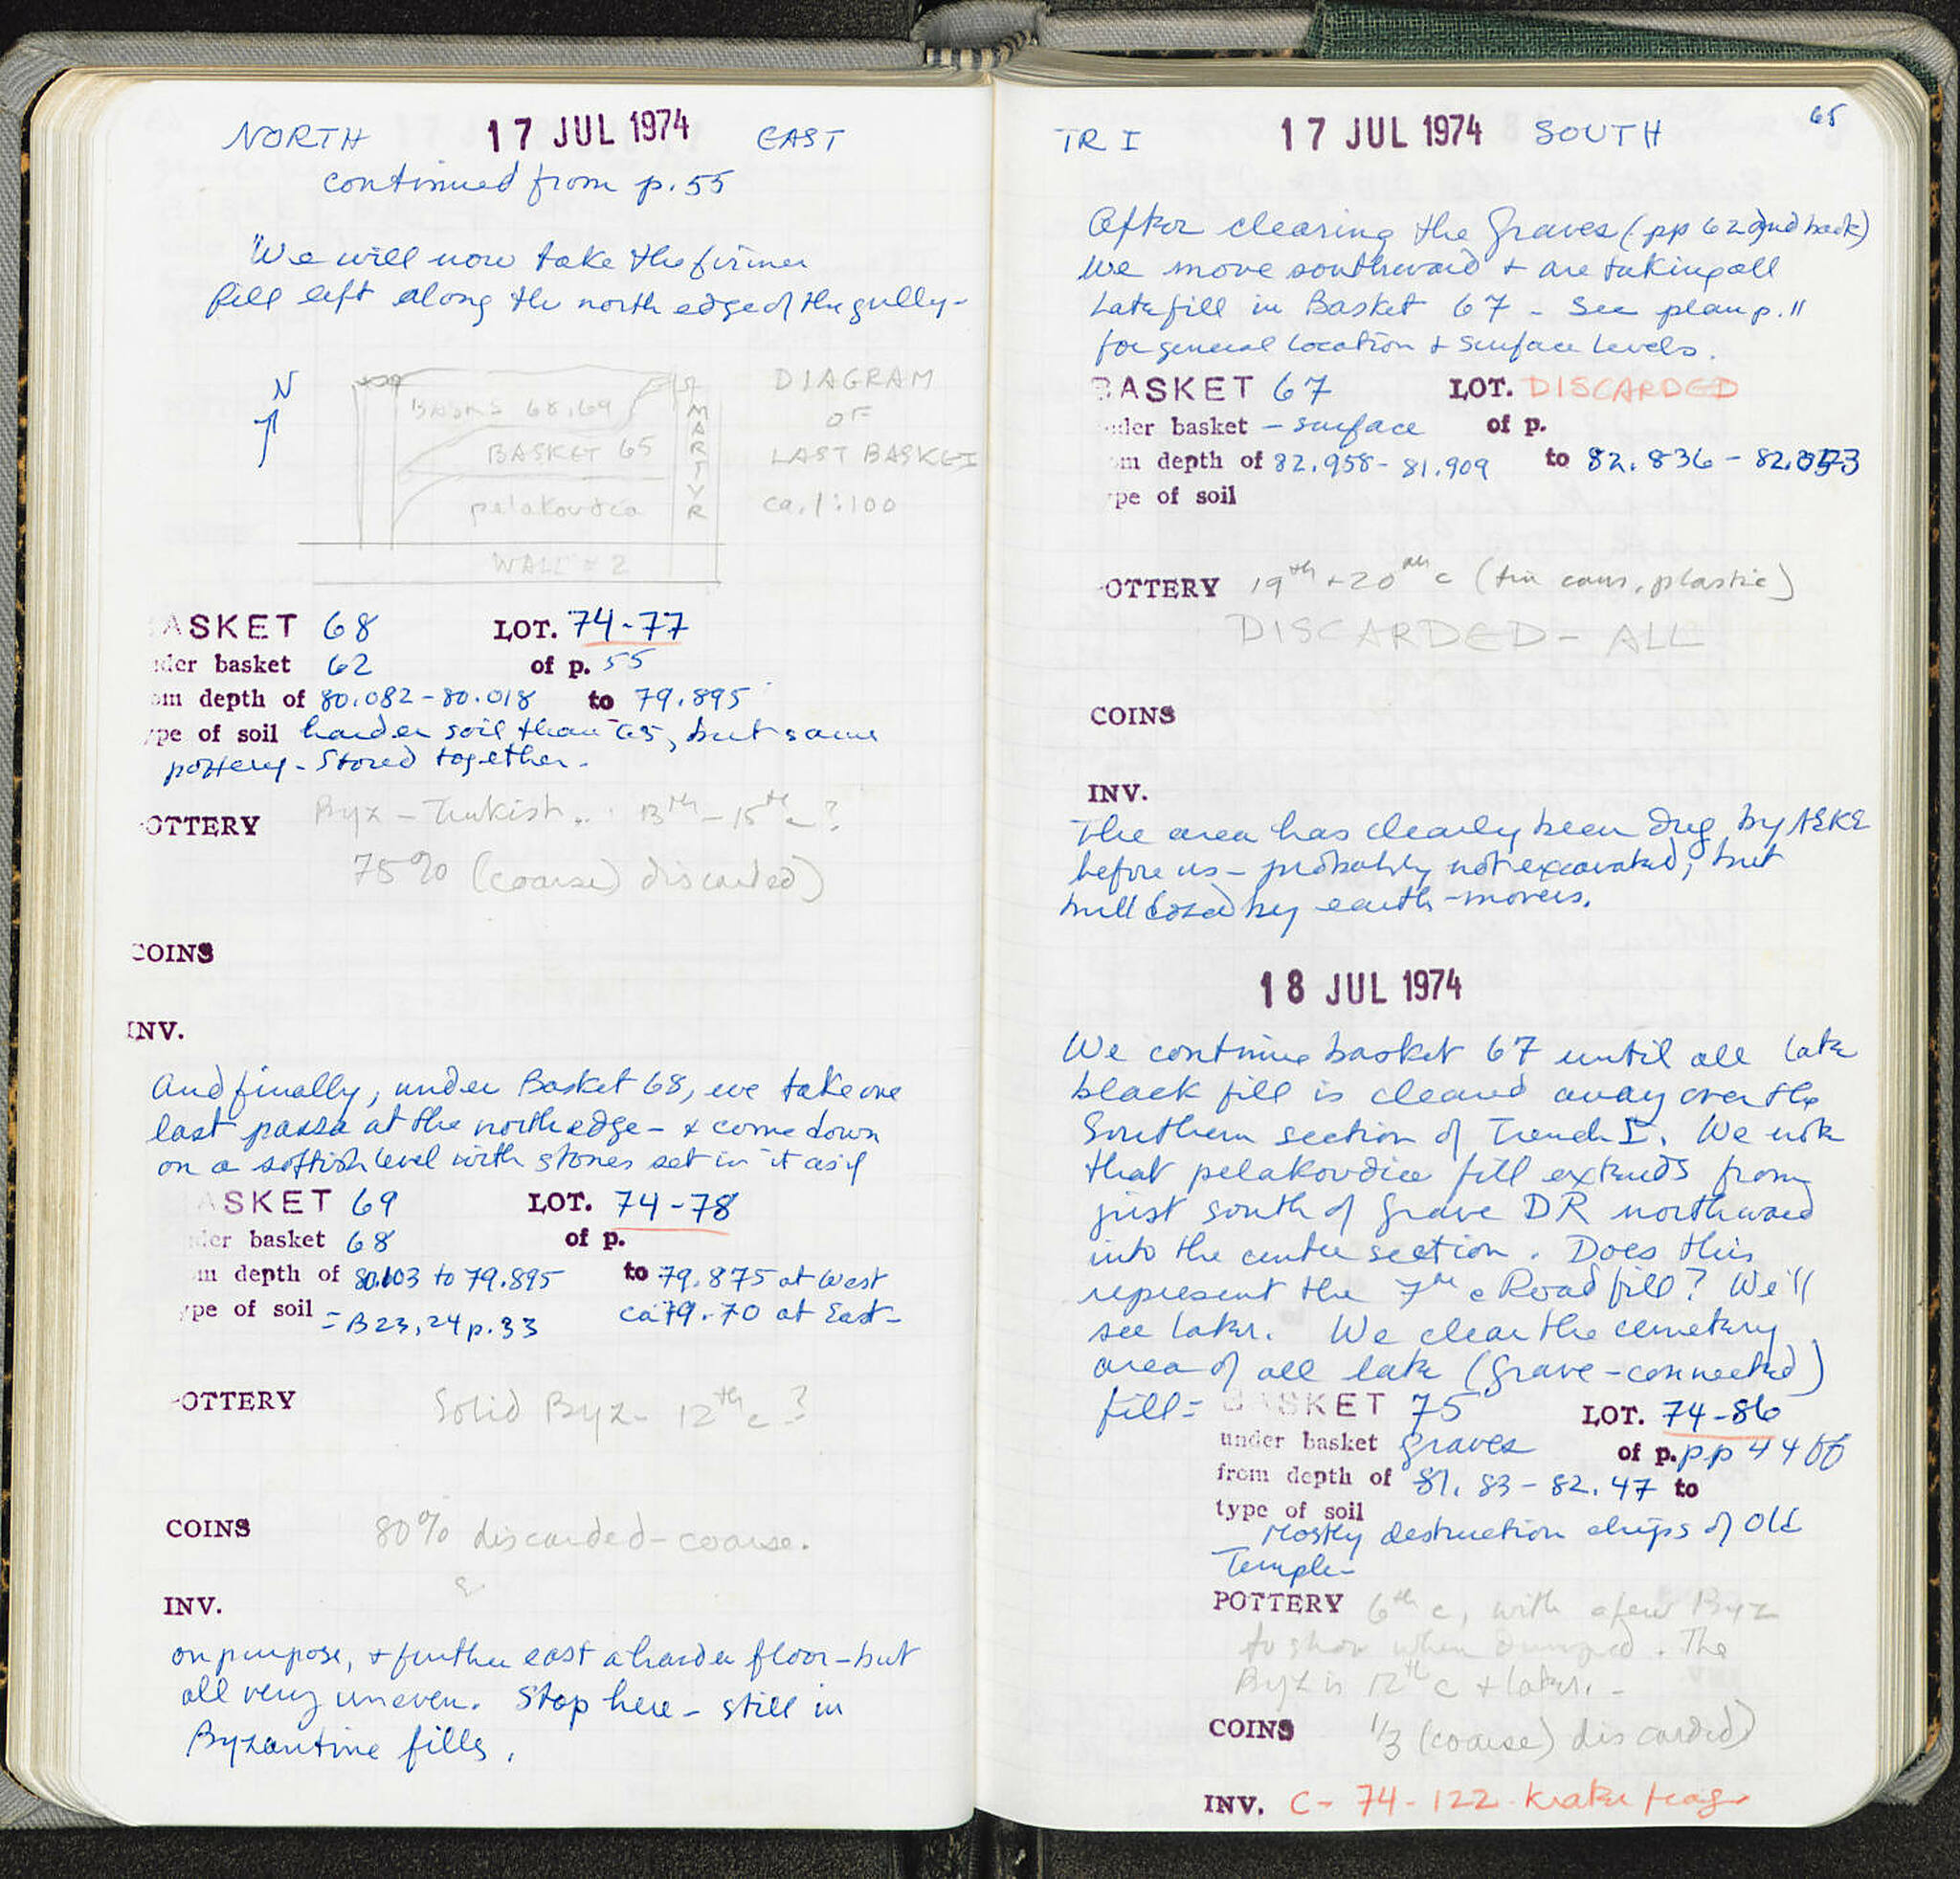 NORTH 17 JUL 1974 EAST
continued from p. 55
"We will now take the firmer
fill left along the north edge of the gully -
N
BASKS 68, 69
BASKET 65
pelakovdia
WALL 2
MARTYR
DIAGRAM
OF
LAST BASKET
ca. 1:100
ASKET 68 LOT. 74-77
der basket 62 of p. 55
om depth of 80.082 - 80.018 to 79.895
ype of soil harder soil than 65, but same
pottery - Stored together.
OTTERY Byz - Turkish... 13th - 15th c?
75% (coarse) discarded)
COINS
INV.
And finally, under Basket 68, we take one
last passa at the north edge - & come down
on a softish level with stones set in it as if
ASKET 69 LOT. 74-78
der basket 68 of p.
m depth of 80.103 to 79.895 to 79.875 at West
ype of soil = B23, 24 p. 33 ca 79.70 at East -
OTTERY Solid Byz - 12th c?
COINS 80% discarded - coarse.
INV.
on purpose, & further east a harder floor - but
all very uneven. Stop here - still in
Byzantine fills.
65
TR I 17 JUL 1974 SOUTH
After clearing the Graves (pp 62 and back)
we move southward & are taking all
Late fill in Basket 67 - See plan p. 11
for general location & surface levels.
BASKET 67 LOT. DISCARDED
der basket - surface of p.
om depth of 82.958 - 81.909 to 82.836 -
pe of soil
OTTERY 19th + 20th c (tin cans, plastic)
DISCARDED - ALL
COINS
INV.
The area has clearly been dug by AEKE
before us - probably not excavated, but
bulldozed by earth-movers.
18 JUL 1974
We continue basket 67 until all late
black fill is cleared away over the
Southern section of Trench I. We note
that pelakovdia fill extends from
just south of Grave DR northward
into the center section. Does this
represent the 7th c Road fill? We'll
see later. We clear the cemetery
area of all late (Grave-connected)
fill = BASKET 75 LOT. 74-86
under basket graves of p. pp 44 ff
from depth of 81.83 - 82.47 to
type of soil
Mostly destruction chips of Old
Temple -
POTTERY 6th c, with a few Byz
to show when dumped. The
Byz is 12th c & later. -
COINS 1/3 (coarse) discarded)
INV. C - 74 - 122 - krater frag